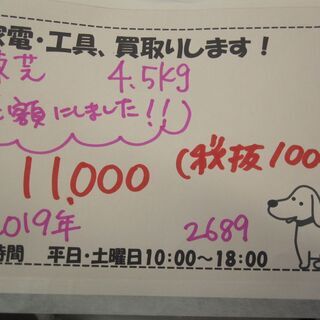 家電・工具、買取りします！
東芝 4.5kg
額にしました!!
11,000 (税抜100
2019年 2689
時間 平日・土曜日10:00～18:00